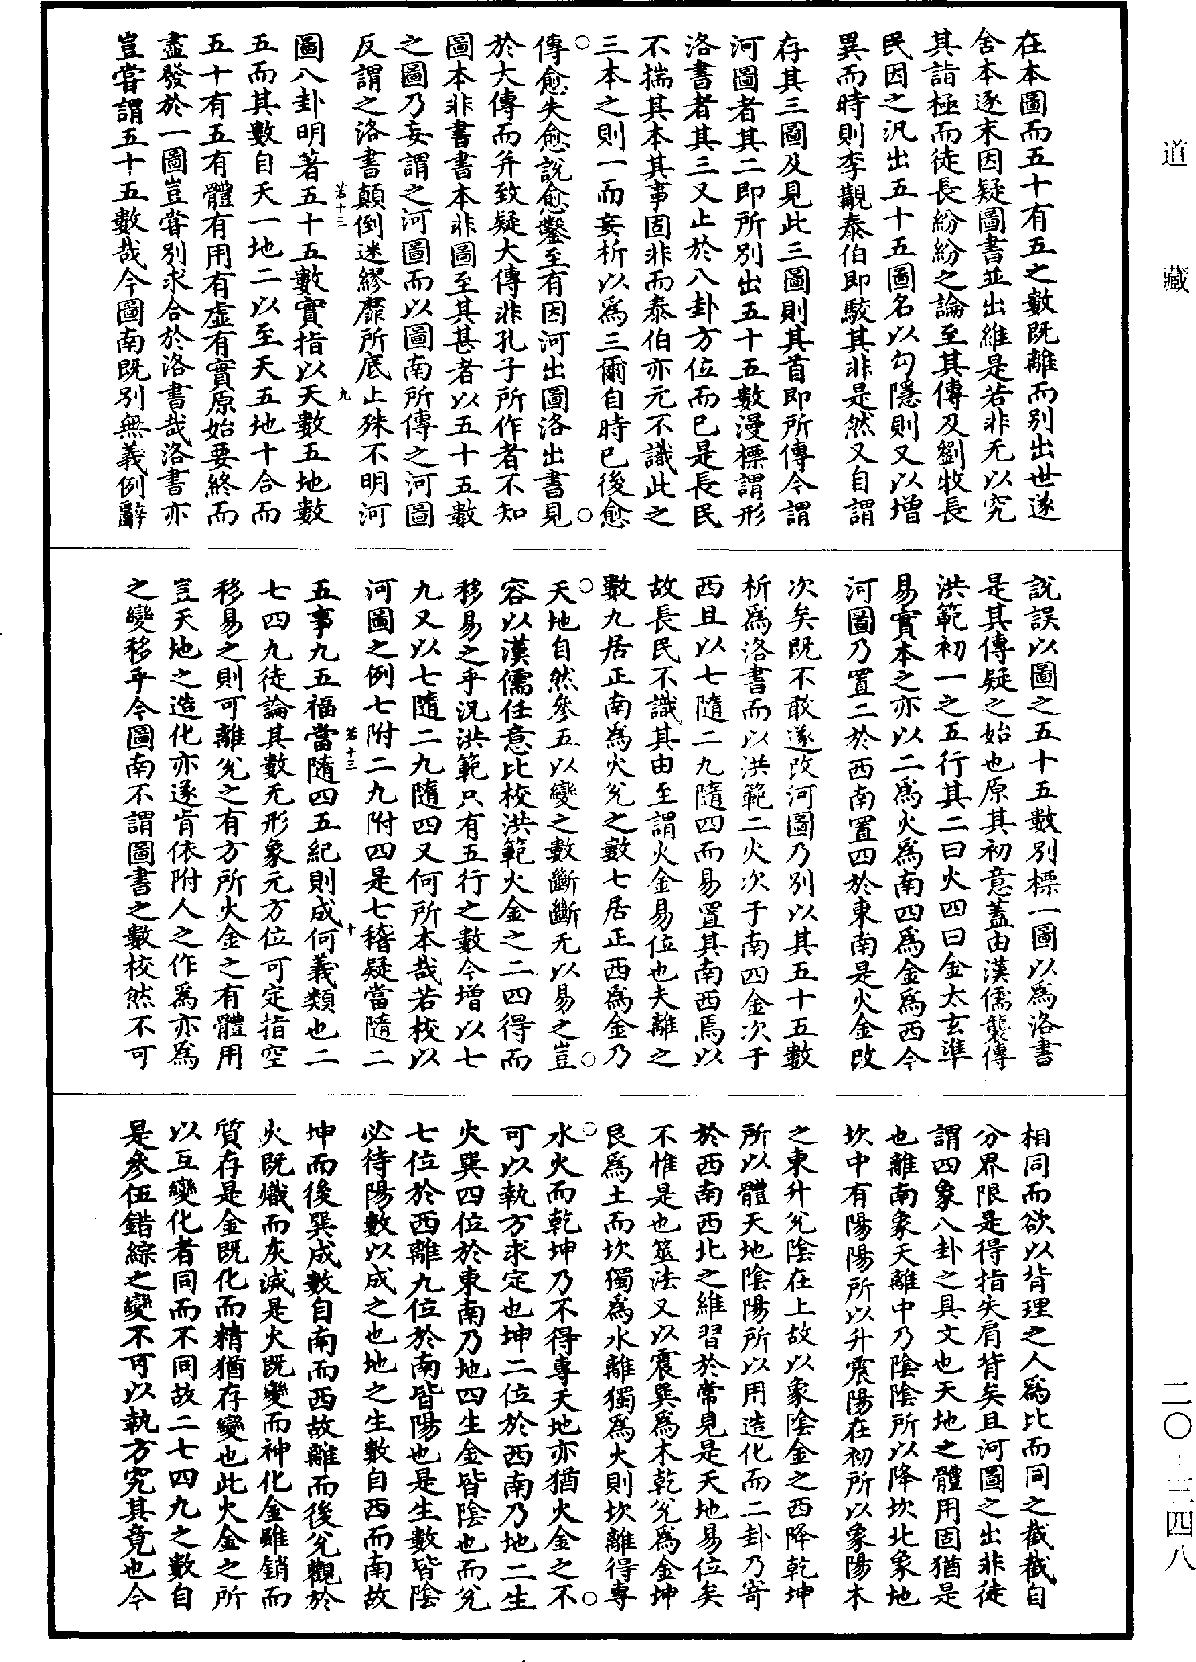 道藏
二〇-三四八
在本圖而五十有五之數既離而別出世遂
舍本逐末因疑圖書並出維是若非无以究
其詣極而徒長紛紛之論至其傳及劉牧長
民因之汎出五十五圖名以勾隱則又以增
異而時則李觀泰伯即駮其非是然又自謂
存其三圖及見此三圖則其首即所傳今謂
河圖者其二即所別出五十五數漫標謂形
洛書者其三又止於八卦方位而已是長民
不揣其本其事固非而泰伯亦元不識此之
三本之則一而妄析以為三爾自時已後愈
傳愈失愈說愈鑿至有因河出圖洛出書見
於大傳而并致疑大傳非孔子所作者不知
圖本非書書本非圖至其甚者以五十五數
之圖乃妄謂之河圖而以圖南所傳之河圖
反謂之洛書顛倒迷繆靡所底止殊不明河
若十三
九
圖八卦明著五十五數實指以天數五地數
五而其數自天一地二以至天五地十合而
五十有五有體有用有虛有實原始要終而
盡發於一圖豈嘗別求合於洛書哉洛書亦
豈嘗謂五十五數哉今圖南既別無義例辭
說誤以圖之五十五數別標一圖以為洛書
是其傳疑之始也原其初意蓋由漢儒襲傳
洪範初一之五行其二曰火四曰金太玄準
易實本之亦以二為火為南四為金為西今
河圖乃置二於西南置四於東南是火金改
次矣既不敢遂改河圖乃別以其五十五數
析為洛書而以洪範二火次于南四金次于
西且以七隨二九隨四而易置其南西焉以
故長民不識其由至謂火金易位也夫離之
數九居正南為火兌之數七居正西為金乃
天地自然參五以變之數斷斷无以易之豈
容以漢儒任意比校洪範火金之二四得而
移易之乎況洪範只有五行之數今增以七
九又以七隨二九隨四又何所本哉若校以
河圖之例七附二九附四是七稽疑當隨二
若十三
十
五事九五福當隨四五紀則成何義類也二
七四九徒論其數无形象元方位可定指空
移易之則可離兌之有方所火金之有體用
豈天地之造化亦遂肯依附人之作為亦為
之變移乎今圖南不謂圖書之數校然不可
相同而欲以背理之人為比而同之截截自
分界限是得指失肩背矣且河圖之出非徒
謂四象八卦之具文也天地之體用固猶是
也離南象天離中乃陰陰所以降坎北象地
坎中有陽陽所以升震陽在初所以象陽木
之東升兌陰在上故以象陰金之西降乾坤
所以體天地陰陽所以用造化而二卦乃寄
於西南西北之維習於常見是天地易位矣
不惟是也筮法又以震巽為木乾兌為金坤
艮為土而坎獨為水離獨為火則坎離得專
水火而乾坤乃不得專天地亦猶火金之不
可以執方求定也坤二位於西南乃地二生
火巽四位於東南乃地四生金皆陰也而兌
七位於西離九位於南皆陽也是生數皆陰
必待陽數以成之也地之生數自西而南故
坤而後巽成數自南而西故離而後兌觀於
火既熾而灰滅是火既變而神化金雖銷而
質存是金既化而精猶存變也此火金之所
以互變化者同而不同故二七四九之數自
是參伍錯綜之變不可以執方究其竟也今